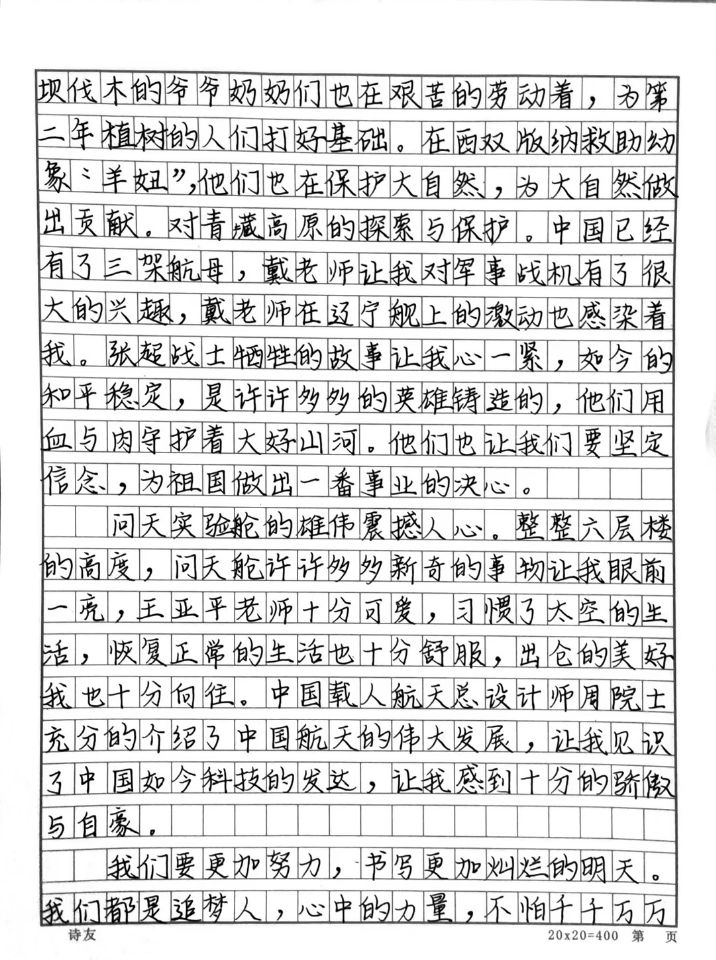 坝伐木的爷爷奶奶们也在艰苦的劳动着，为第
二年植树的人们打好基础。在西双版纳救助幼
象“羊妞”，他们也在保护大自然，为大自然做
出贡献。对青藏高原的探索与保护。中国已经
有了三架航母，戴老师让我对军事战机有了很
大的兴趣，戴老师在辽宁舰上的激动也感染着
我。张超战士牺牲的故事让我心一紧，如今的
和平稳定，是许许多多的英雄铸造的，他们用
血与肉守护着大好山河。他们也让我们要坚定
信念，为祖国做出一番事业的决心。
问天实验舱的雄伟震撼人心。整整六层楼
的高度，问天舱许许多多新奇的事物让我眼前
一亮，王亚平老师十分可爱，习惯了太空的生
活，恢复正常的生活也十分舒服，出仓的美好
我也十分向往。中国载人航天总设计师周院士
充分的介绍了中国航天的伟大发展，让我见识
了中国如今科技的发达，让我感到十分的骄傲
与自豪。
我们要更加努力，书写更加灿烂的明天。
我们都是追梦人，心中的力量，不怕千千万万
诗友 20x20=400 第 页